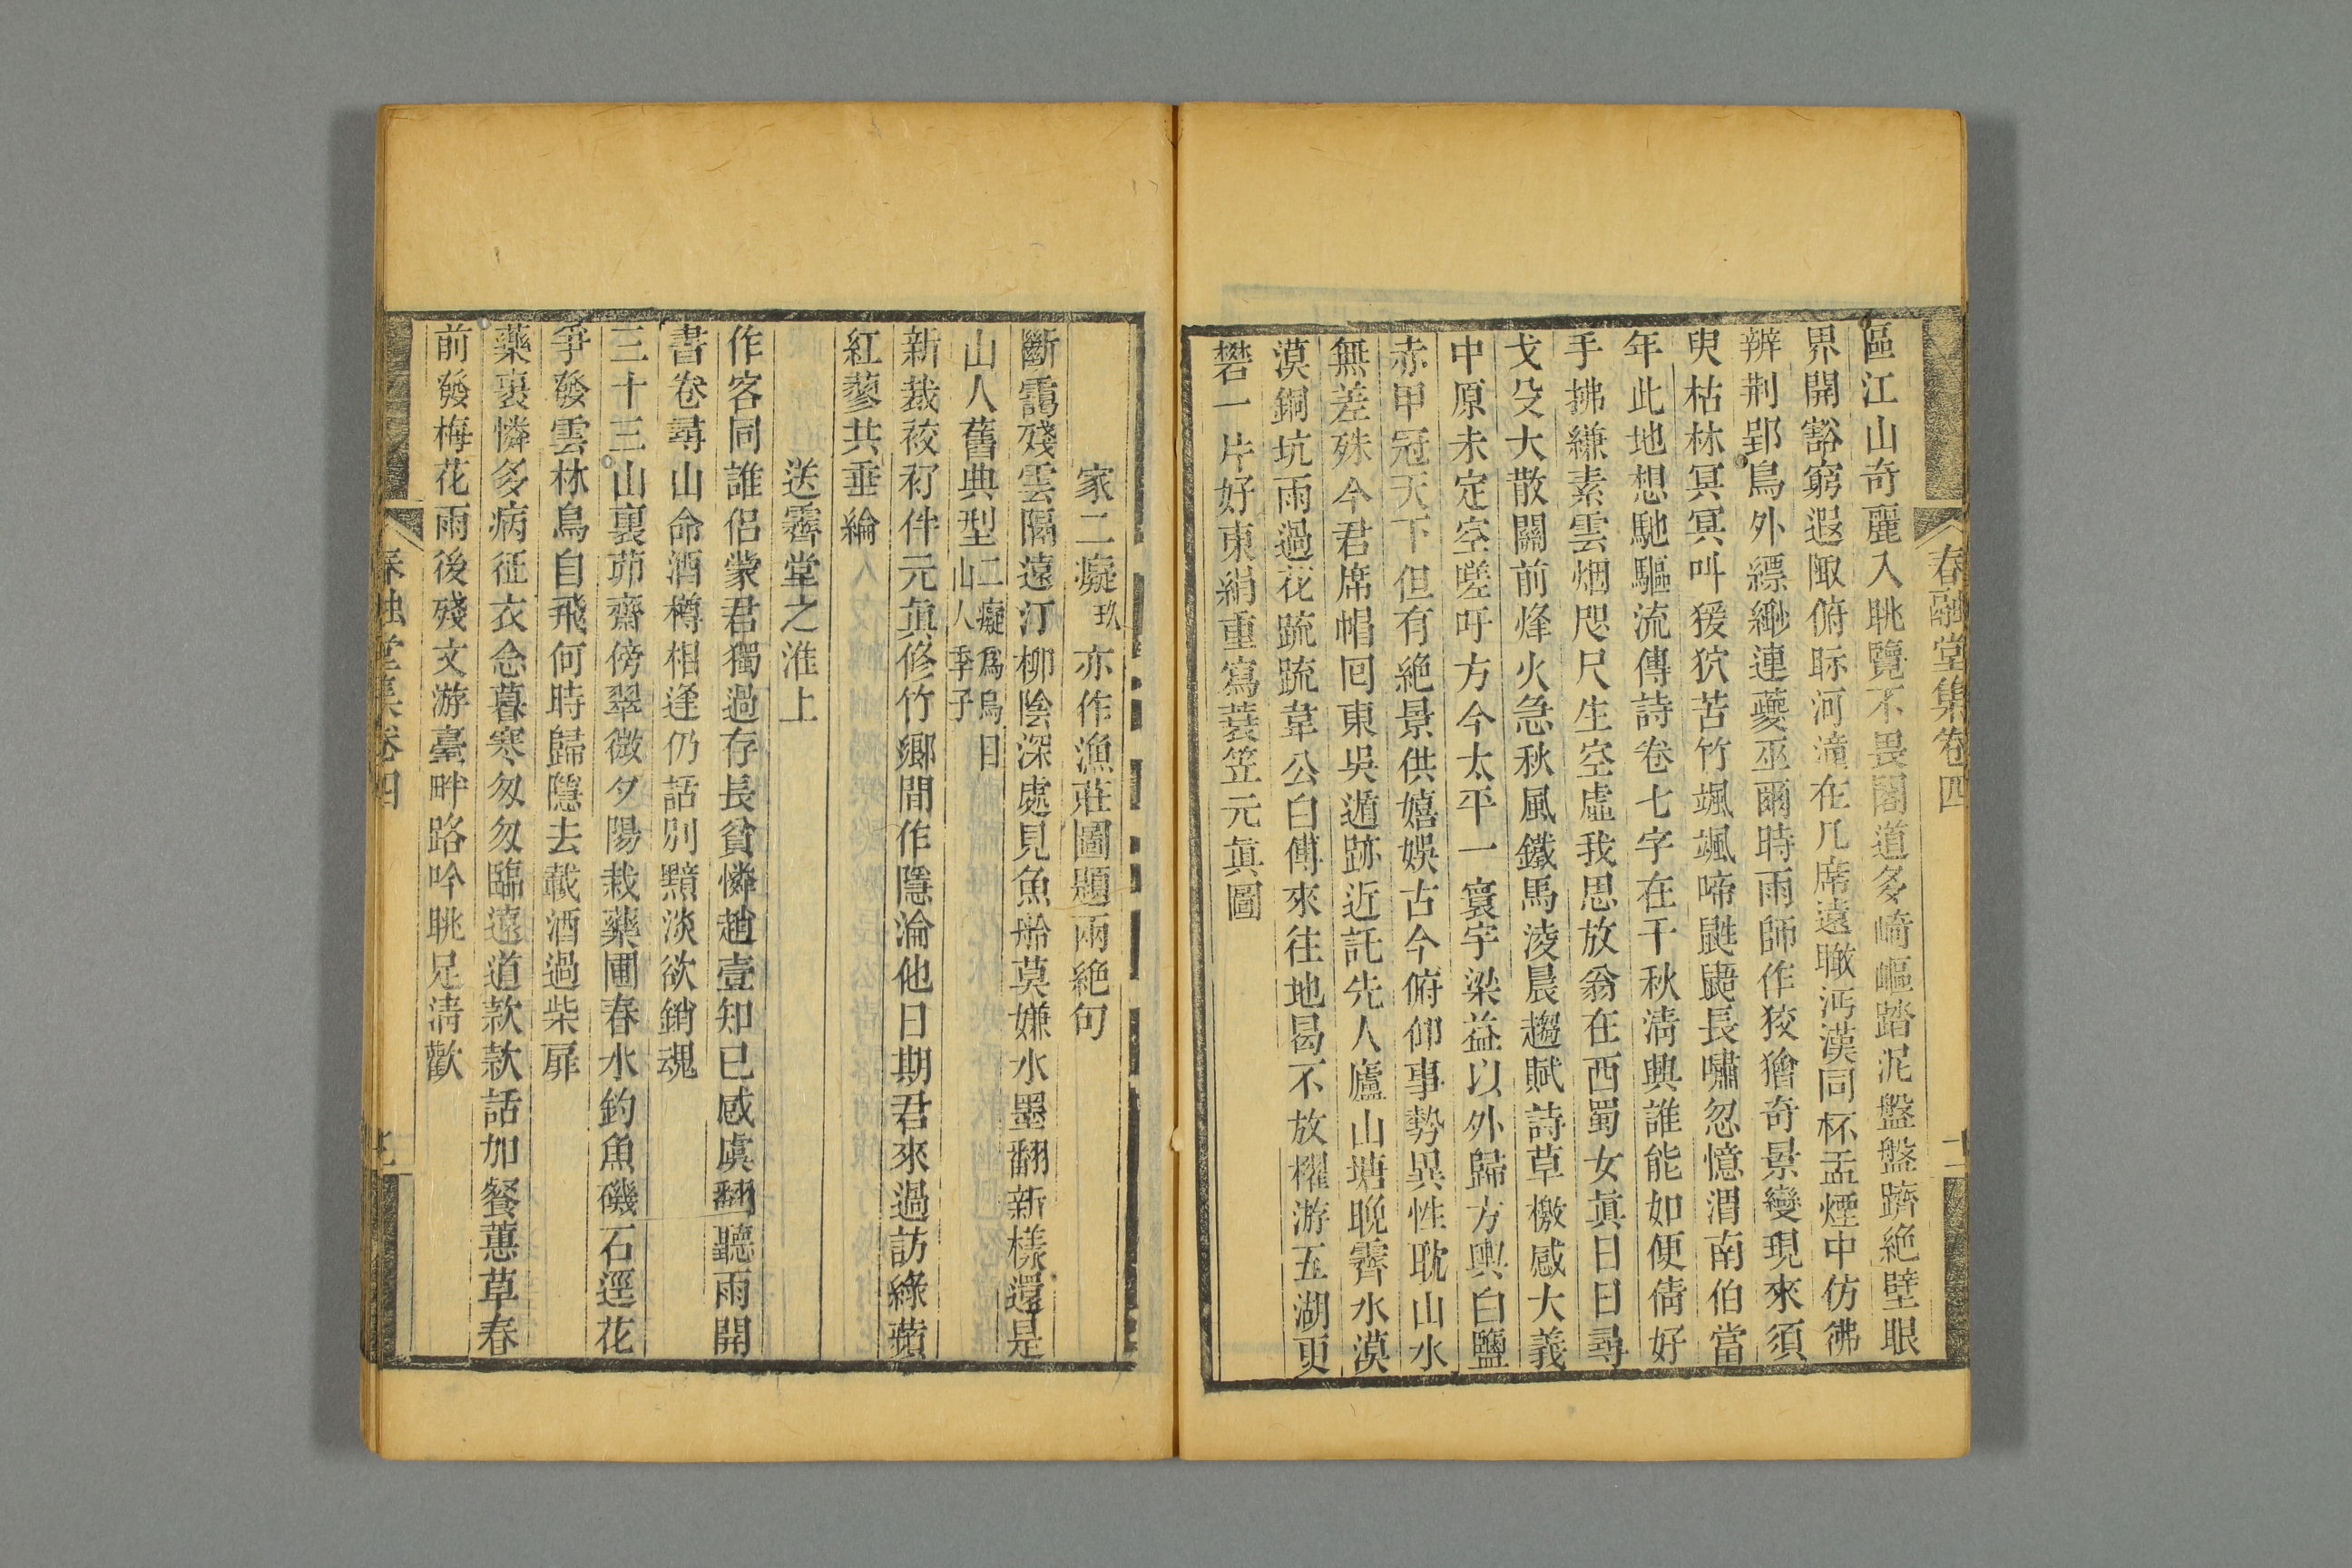 春融堂集卷四
區江山奇麗入眺覽不畏閣道多崎嶇踏泥盤盤躋絶壁眼
界開豁窮遐陬俯眎河潼在几席遠瞰沔漢同杯盂煙中仿彿
辨荆郢鳥外縹緲連夔巫爾時雨師作狡獪奇景變現來須
臾枯林冥冥叫猨狖苦竹颯颯啼鼪鼯長嘯忽憶渭南伯當
年此地想馳驅流傳詩卷七字在千秋淸興誰能如便倩好
手拂縑素雲烟咫尺生空虛我思放翁在西蜀女眞日日尋
戈殳大散關前烽火急秋風鐵馬淩晨趨賦詩草檄感大義
中原未定空嗟吁方今太平一寰宇梁益以外歸方輿白鹽
赤甲冠天下但有絶景供嬉娛古今俯仰事勢異性耽山水
無差殊今君席帽囘東吳遁跡近託先人廬山塘晩霽水漠
漠銅坑雨過花䟽䟽韋公白傅來往地曷不放櫂游五湖更
礬一片好東絹重寫蓑笠元眞圖
家二癡玖亦作漁莊圖題兩絶句
斷靄殘雲隔遠汀柳陰深處見魚舲莫嫌水墨翻新樣還是
山人舊典型二癡爲烏目
山人季子
新裁筱䇶伴元眞修竹鄉間作隱淪他日期君來過訪綠蘋
紅蓼共垂綸
送霽堂之淮上
作客同誰侶蒙君獨過存長貧憐趙壹知已感虞翻聽雨開
書卷尋山命酒樽相逢仍話別黯淡欲銷魂
三十三山裏茆齋傍翠微夕陽栽藥圃春水釣魚磯石逕花
爭發雲林鳥自飛何時歸隱去載酒過柴扉
藥裹憐多病征衣念暮寒匆匆臨遠道款款話加餐蕙草春
前發梅花雨後殘文游臺畔路吟眺足淸歡
春融堂集卷四